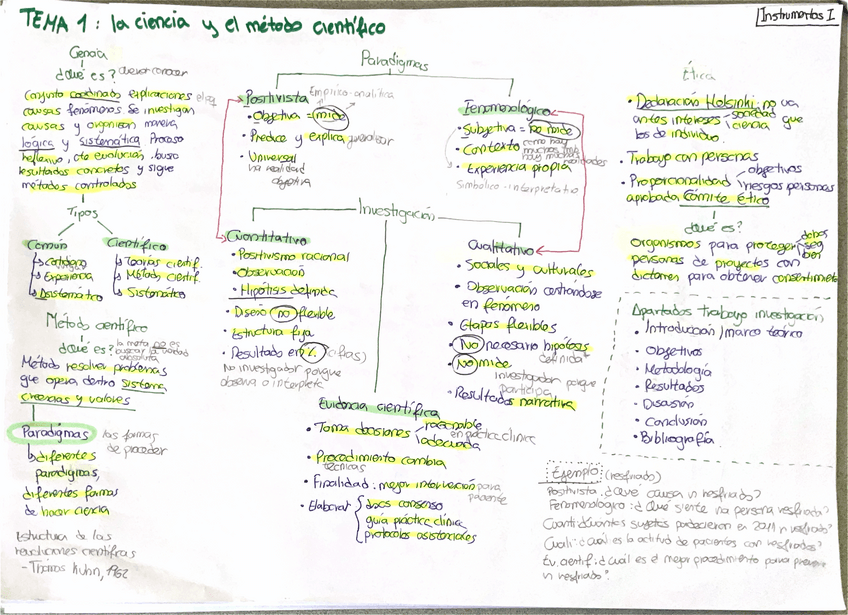 TEMA 1: la ciencia y el método científico
Instrumentos I
Ciencia
¿Qué es? querer conocer
Conjunto coordinado explicaciones
causas fenómenos Se investigan
causas y organizan manera
lógica y sistemática. Proceso
reflexivo, cte evolución, busca
resultados concretos y sigue
métodos controlados
Tipos
Común
Cotidiano
vulgar
Experiencia
Asistemático
Científico
Teorías cientif.
Método cientif.
Sistemático
Método científico
la meta no es
buscar la verdad
absoluta
¿Qué es?
Método resolver problemas
que opera dentro sistema
creencias y valores
Paradigmas
las formas
de proceder
diferentes
paradigmas,
diferentes formas
de hacer ciencia
Estructura de las
revoluciones científicas
- Thomas Kuhn, 1962
Paradigmas
Positivista
Empírico-analítica
• Objetiva = mide
• Predice y explica, generalizar
• Universal
ha realidad
objetiva
Fenomenológico
• Subjetiva = no mide
• Contexto como hay
muchas
hay muchas
realidades
• Experiencia propia
Simbólico-interpretativo
Investigación
Cuantitativo
• Positivismo racional
• Observación
• Hipótesis definida
• Diseño no flexible
• Estructura fija
• Resultado en % (cifras)
No investigador porque
observa o interpreta
Cualitativo
• Sociales y culturales
• Observación centrándose
en fenómeno
• Etapas flexibles
• No necesario hipótesis
definida
• No mide
investigador porque
participa
• Resultados narrativa
Evidencia científica
• Toma decisiones razonable
adecuada en práctica clínica
• Procedimiento cambia
técnicas
• Finalidad: mejor intervención para
paciente
• Elaborar docs consenso
guía práctica clínica
protocolos asistenciales
Ética
• Declaración Helsinki: no va
antes intereses sociedad que
ciencia
los de individuo.
• Trabajo con personas
• Proporcionalidad objetivos
riesgos personas
aprobada Cómite ético
¿Qué es?
Organismos para proteger dchos
seg
bien
personas de proyectos con
dictamen para obtener consentimiento
Apartados trabajo investigación
• Introducción/marco teórico
• Objetivos
• Metodología
• Resultados
• Discusión
• Conclusión
• Bibliografía
Ejemplo: (resfriado)
Positivista: ¿Qué causa un resfriado?
Fenomenológico: ¿Qué siente una persona resfriada?
Cuanti: ¿cuantos sujetos padecieron en 2011 un resfriado?
Cuali: ¿cuál es la actitud de pacientes con resfriados?
Ev. cientif: ¿cuál es el mejor procedimiento para prevenir
un resfriado?